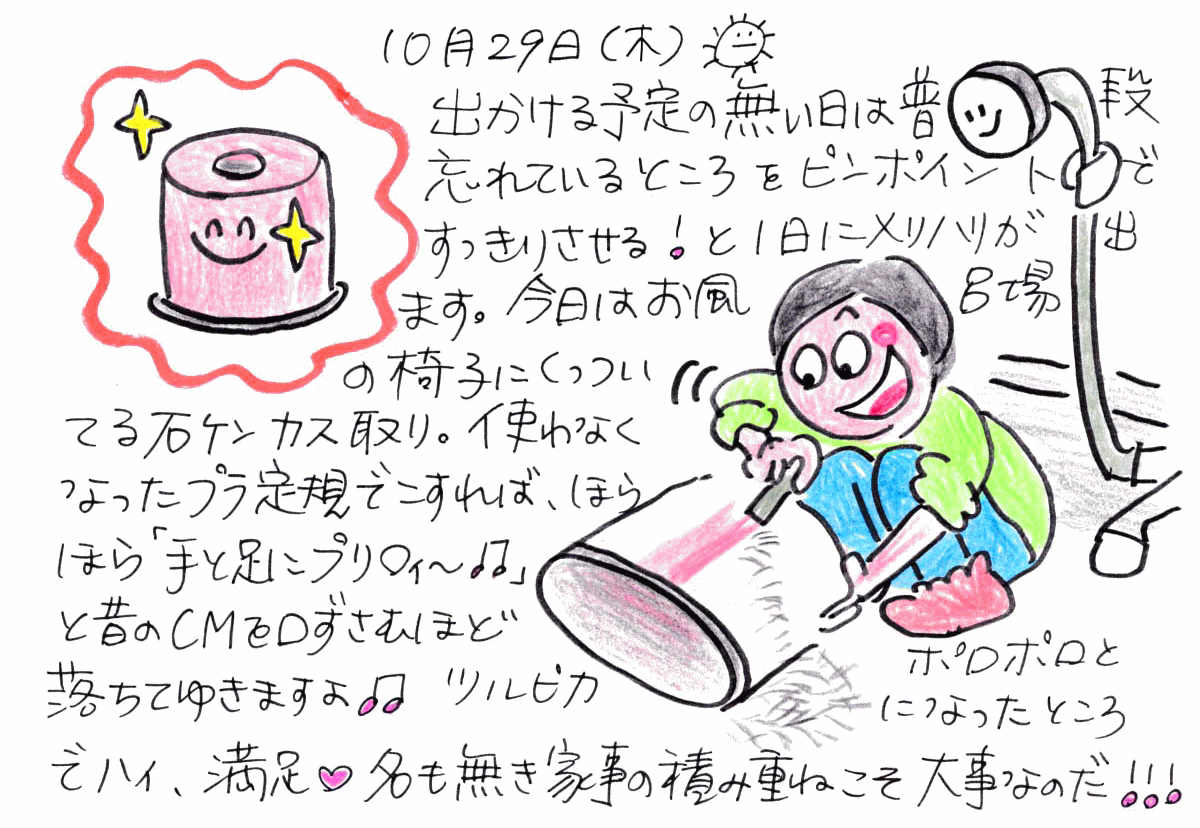 10月29日(木)
出かける予定の無い日は普段
忘れているところをピンポイントで
すっきりさせる!と1日にメリハリが出
ます。今日はお風呂場
の椅子にくっつい
てる石ケンカス取り。使わなく
なったプラ定規でこすれば、ほら
ほら「手と足にプリ○ィ〜♫」
と昔のCMを口ずさむほど
落ちてゆきますよ♫ ツルピカ
ポロポロと
になったところ
でハイ、満足♥名も無き家事の積み重ねこそ大事なのだ!!!